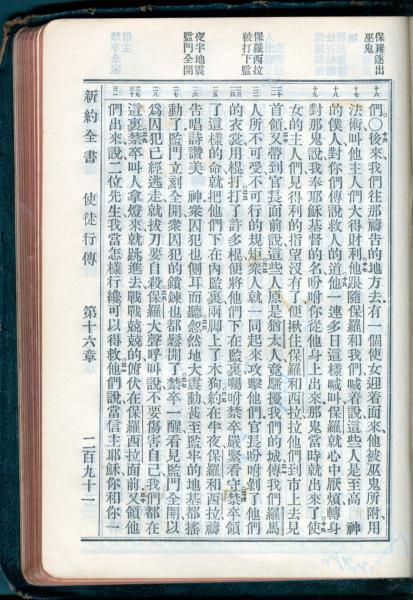 保羅逐出
巫鬼
保羅西拉
被打下監
夜半地震
監門全開
們○後來、我們往那禱告的地方去、有一個使女迎着面來、他被巫鬼所附、用
法術叫他主人們大得財利。他跟隨保羅和我們、喊着說、這些人是至高 神
的僕人、對你們傳說救人的道。他一連多日這樣喊叫、保羅就心中厭煩、轉身
對那鬼說、我奉耶穌基督的名、吩咐你從他身上出來。那鬼當時就出來了。使
女的主人們見得利的指望沒有了、便揪住保羅和西拉、拉他們到市上去見
首領。又帶到官長面前說、這些人原是猶太人、竟騷擾我們的城、傳我們羅馬
人所不可受不可行的規矩。衆人就一同起來攻擊他們、官長吩咐剝了他們
的衣裳、用棍打。打了許多棍、便將他們下在監裏、囑咐禁卒嚴緊看守。禁卒領
了這樣的命、就把他們下在內監裏、兩脚上了木狗。約在半夜、保羅和西拉禱
告唱詩讚美 神、衆囚犯也側耳而聽。忽然地大震動、甚至監牢的地基都搖
動了、監門立刻全開、衆囚犯的鎖鍊也都鬆開了。禁卒一醒、看見監門全開、以
爲囚犯已經逃走、就拔刀要自殺。保羅大聲呼叫說、不要傷害自己、我們都在
這裏。禁卒叫人拿燈來、就跳進去、戰戰兢兢的、俯伏在保羅西拉面前。又領他
們出來、說、二位先生、我當怎樣行纔可以得救。他們說、當信主耶穌、你和你一
新約全書 使徒行傳 第十六章 二百九十一